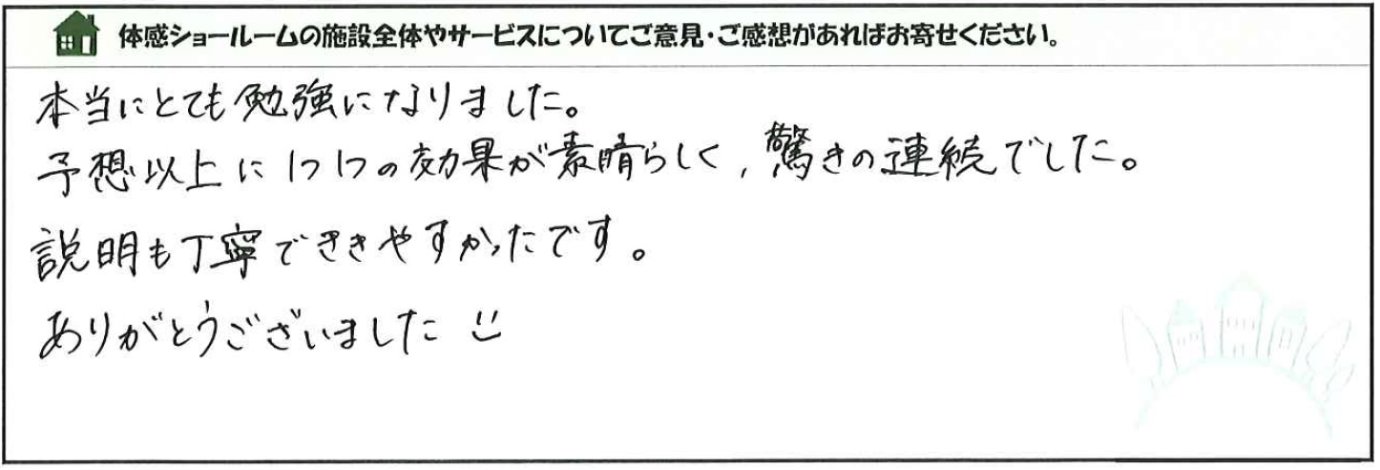 体感ショールームの施設全体やサービスについてご意見・ご感想があればお寄せください。
本当にとても勉強になりました。
予想以上に1つ1つの効果が素晴らしく、驚きの連続でした。
説明も丁寧でききやすかったです。
ありがとうございました